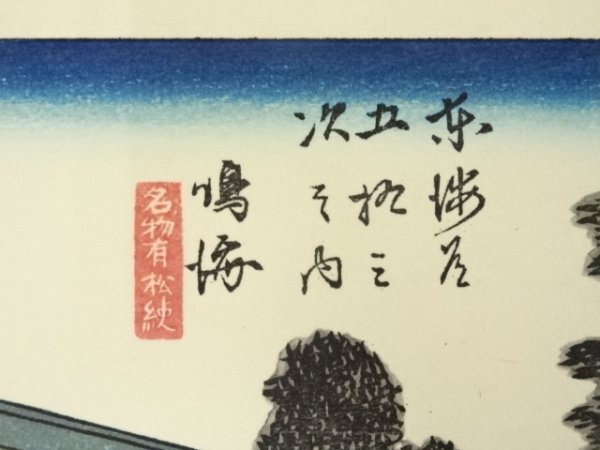 東海道
五拾三
次之内
鳴海
名物有松絞